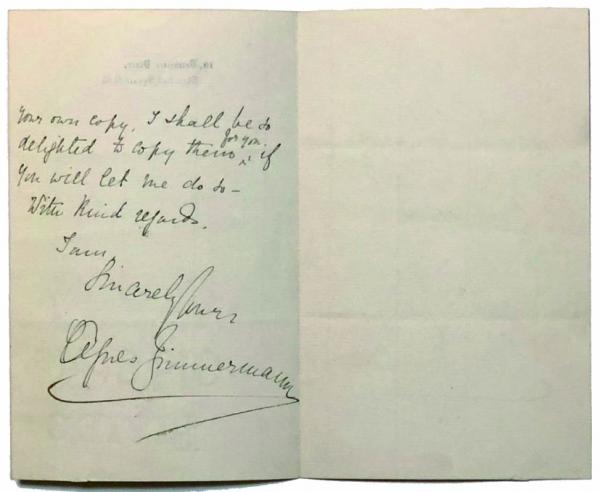 your own copy, I shall be so
delighted to copy them for you if
you will let me do so –
With kind regards,
I am
Sincerely yours
Agnes Zimmermann